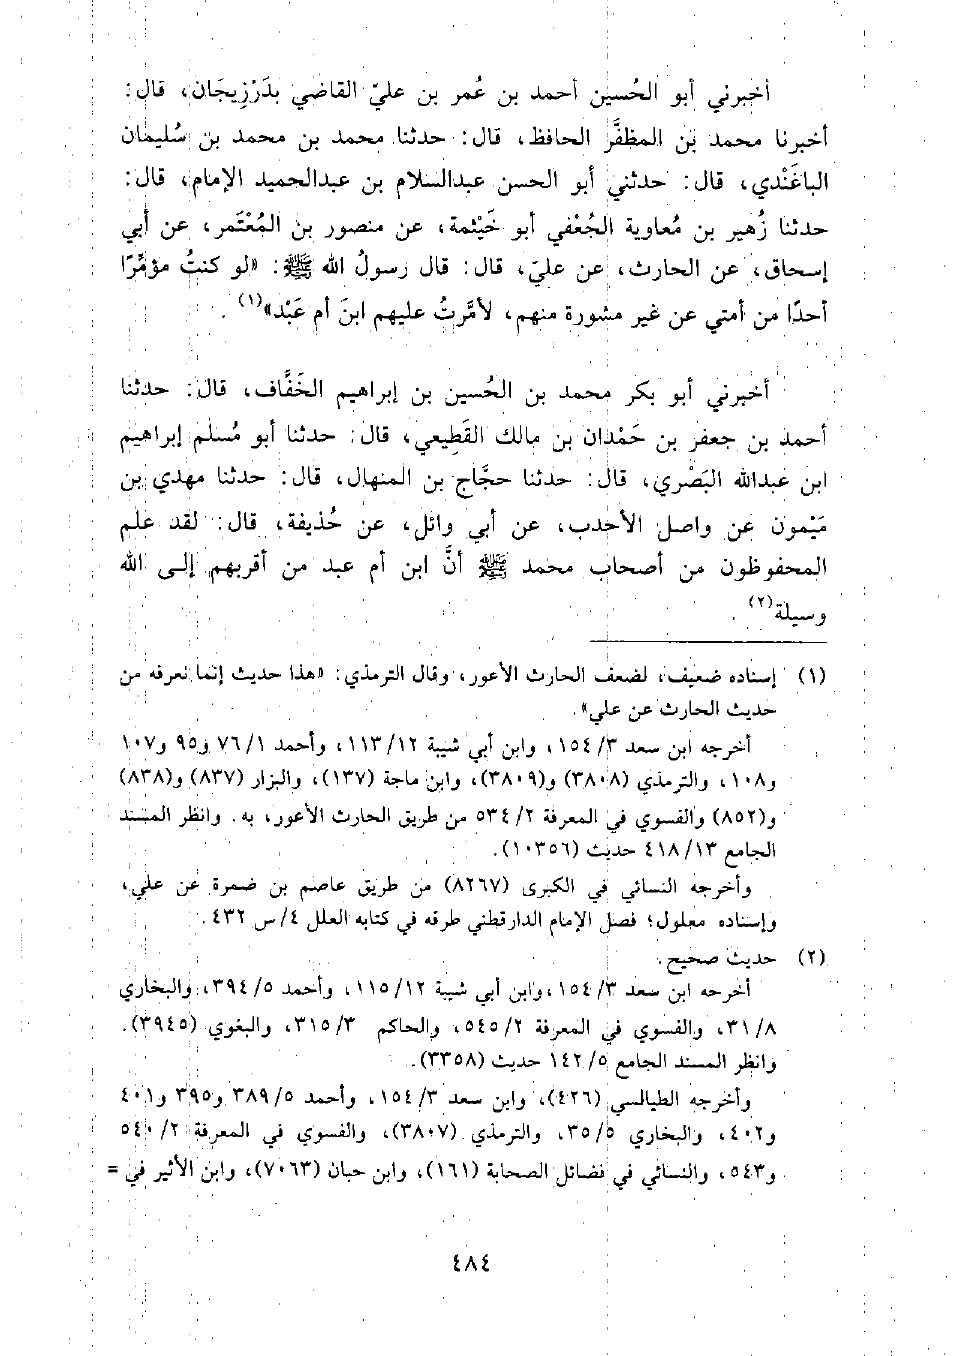 أخبرني أبو الحُسين أحمد بن عُمر بن عليّ القاضي بدَرْزِيجَان، قال:
أخبرنا محمد بن المظفَّر الحافظ، قال: حدثنا محمد بن محمد بن سُليمان
الباغَنْدي، قال: حدثني أبو الحسن عبدالسلام بن عبدالحميد الإمام، قال:
حدثنا زُهير بن مُعاوية الجُعْفي أبو خَيْثمة، عن منصور بن المُعْتَمر، عن أبي
إسحاق، عن الحارث، عن عليّ، قال: قال رسولُ الله ﷺ: «لو كنتُ مؤمِّرًا
أحدًا من أمتي عن غير مشورة منهم، لأمَّرتُ عليهم ابنَ أم عَبْد»(١).
أخبرني أبو بكر محمد بن الحُسين بن إبراهيم الخَفَّاف، قال: حدثنا
أحمد بن جعفر بن حَمْدان بن مالك القَطِيعي، قال: حدثنا أبو مُسلم إبراهيم
ابن عبدالله البَصْري، قال: حدثنا حجَّاج بن المنهال، قال: حدثنا مهدي بن
مَيْمون عن واصل الأحدب، عن أبي وائل، عن حُذيفة، قال: لقد علم
المحفوظون من أصحاب محمد ﷺ أنَّ ابن أم عبد من أقربهم إلى الله
وسيلة(٢).
(١) إسناده ضعيف، لضعف الحارث الأعور، وقال الترمذي: «هذا حديث إنما نعرفه من
حديث الحارث عن علي».
أخرجه ابن سعد ٣/ ١٥٤، وابن أبي شيبة ١٢/ ١١٣، وأحمد ١/ ٧٦ و٩٥ و١٠٧
و١٠٨، والترمذي (٣٨٠٨) و(٣٨٠٩)، وابن ماجة (١٣٧)، والبزار (٨٣٧) و(٨٣٨)
و(٨٥٢) والفسوي في المعرفة ٢/ ٥٣٤ من طريق الحارث الأعور، به. وانظر المسند
الجامع ١٣/ ٤١٨ حديث (١٠٣٥٦).
وأخرجه النسائي في الكبرى (٨٢٦٧) من طريق عاصم بن ضمرة عن علي،
وإسناده معلول؛ فصل الإمام الدارقطني طرقه في كتابه العلل ٤/ س ٤٣٢.
(٢) حديث صحيح.
أخرجه ابن سعد ٣/ ١٥٤، وابن أبي شيبة ١٢/ ١١٥، وأحمد ٥/ ٣٩٤، والبخاري
٨/ ٣١، والفسوي في المعرفة ٢/ ٥٤٥، والحاكم ٣/ ٣١٥، والبغوي (٣٩٤٥).
وانظر المسند الجامع ٥/ ١٤٢ حديث (٣٣٥٨).
وأخرجه الطيالسي (٤٢٦)، وابن سعد ٣/ ١٥٤، وأحمد ٥/ ٣٨٩ و٣٩٥ و٤٠١
و٤٠٢، والبخاري ٥/ ٣٥، والترمذي (٣٨٠٧)، والفسوي في المعرفة ٢/ ٥٤٠
و٥٤٣، والنسائي في فضائل الصحابة (١٦١)، وابن حبان (٧٠٦٣)، وابن الأثير في =
٤٨٤